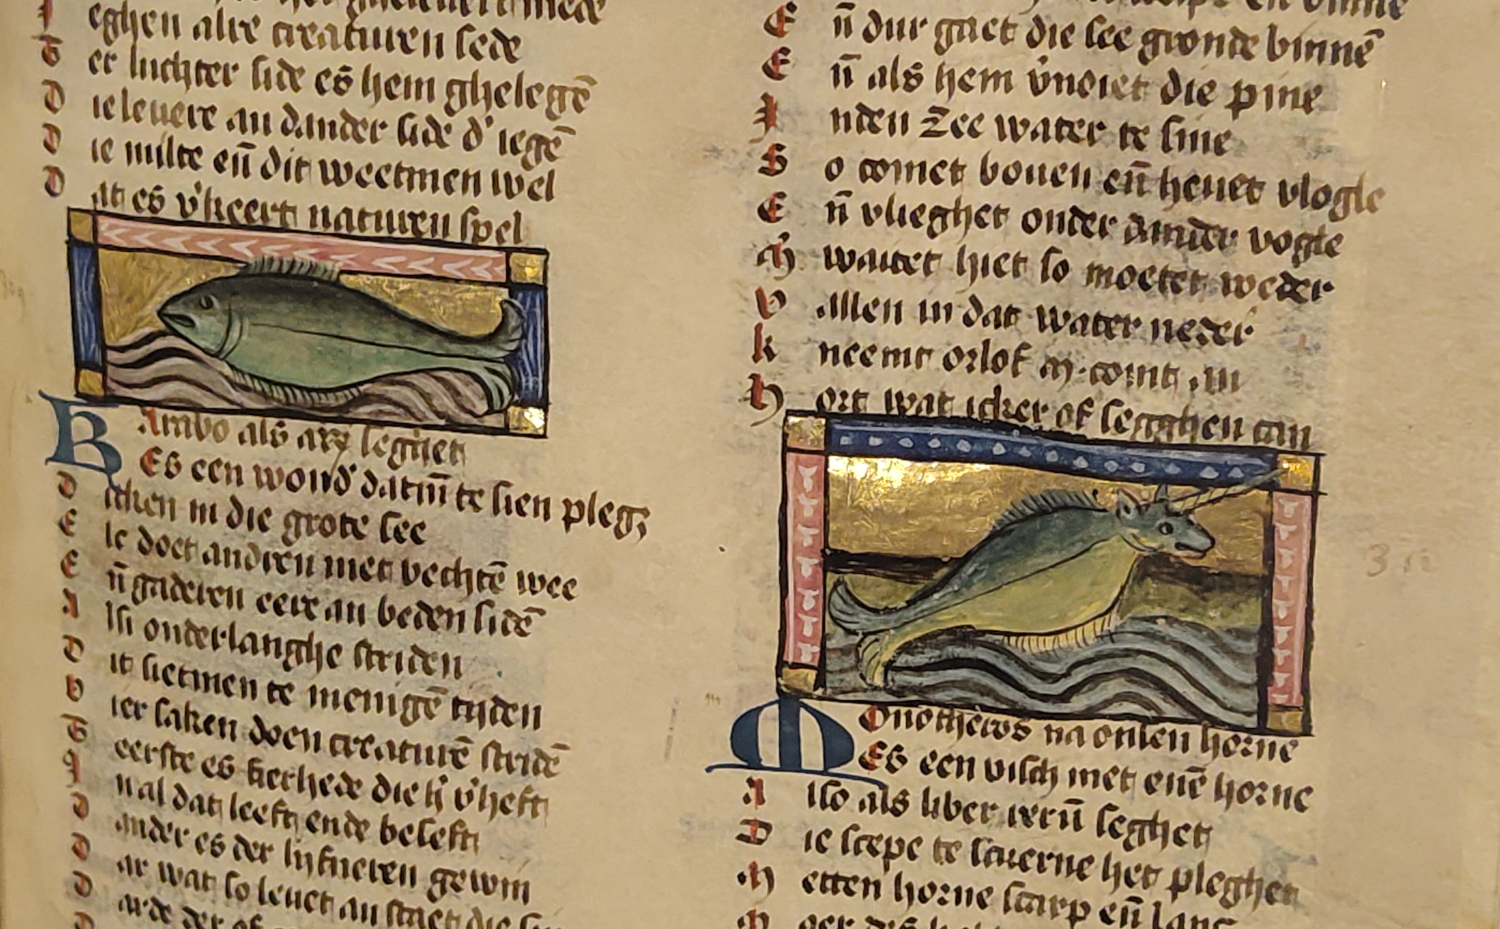 eghen alre creaturen sede
er luchter side es hem gheleghē
D ie leuere an dander side d' ieghē
D ie milte en̄ dit weetmen wel
D at es v'keert naturen spel
Barabo als ary seghet
Es een wond' datm̄ te sien pleg
D icken in die grote see
E le doet andren met vechtē wee
E n̄ gaderen eere an beden sidē
A lsi onderlanghe striden
D it sietmen te menigē tyden
V ier saken doen creaturē stridē
eerste es die v'heft
al dat leeft ende beseft
D ander es der lyfneren gewin
D ar wat so leuet an staet die
D arde der
E n̄ dur gaet die see gronde binnē
E n̄ als hem v'noiet die pine
I nden zee water te sine
S o comet bouen en̄ heuet vlogle
E n̄ vlieghet onder dander vogle
M waiter hiet so moetet weder
V allen in dat water neder
K neemt orlof M comt an
H ort wat icker of segghen can
Monotheros na onsen horne
Es een visch met enē horne
A lso als liber rerū seghet
D ie scepe te scuerne het pleghet
M etten horne scarp en̄ lanc